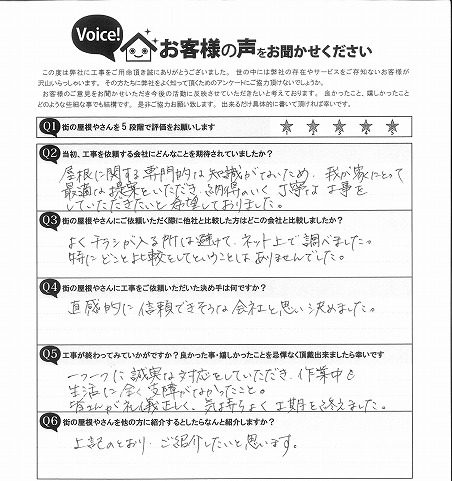 Voice! お客様の声をお聞かせください
この度は弊社に工事をご用命頂き誠にありがとうございました。世の中には弊社の存在やサービスをご存知ないお客様が
沢山いらっしゃいます。その方たちに弊社をよく知って頂くためのアンケートにご協力頂けないでしょうか。
お客様のご意見をお聞かせいただき今後の活動に反映させていただきたいと考えております。良かったこと、嬉しかったこと
どのような些細な事でも結構です。是非ご協力お願い致します。出来るだけ具体的に書いて頂ければ幸いです。
Q1 街の屋根やさんを5段階で評価をお願いします
1 2 3 4 5
Q2 当初、工事を依頼する会社にどんなことを期待されていましたか?
屋根に関する専門的な知識がないため、我が家にとって
最適な提案をいただき、納得のいく丁寧な工事を
していただきたいと希望しておりました。
Q3 街の屋根やさんにご依頼いただく際に他社と比較した方はどこの会社と比較しましたか?
よくチラシが入る所は避けて、ネット上で調べました。
特にどこと比較をしてということはありませんでした。
Q4 街の屋根やさんに工事をご依頼いただいた決め手は何ですか?
直感的に信頼できそうな会社と思い決めました。
Q5 工事が終わってみていかがですか?良かった事・嬉しかったことを忌憚なく頂戴出来ましたら幸いです
一つ一つに誠実な対応をしていただき、作業中も
生活に全く支障がなかったこと。
皆さんが礼儀正しく、気持ちよく工期を終えました。
Q6 街の屋根やさんを他の方に紹介するとしたらなんと紹介しますか?
上記のとおり、ご紹介したいと思います。